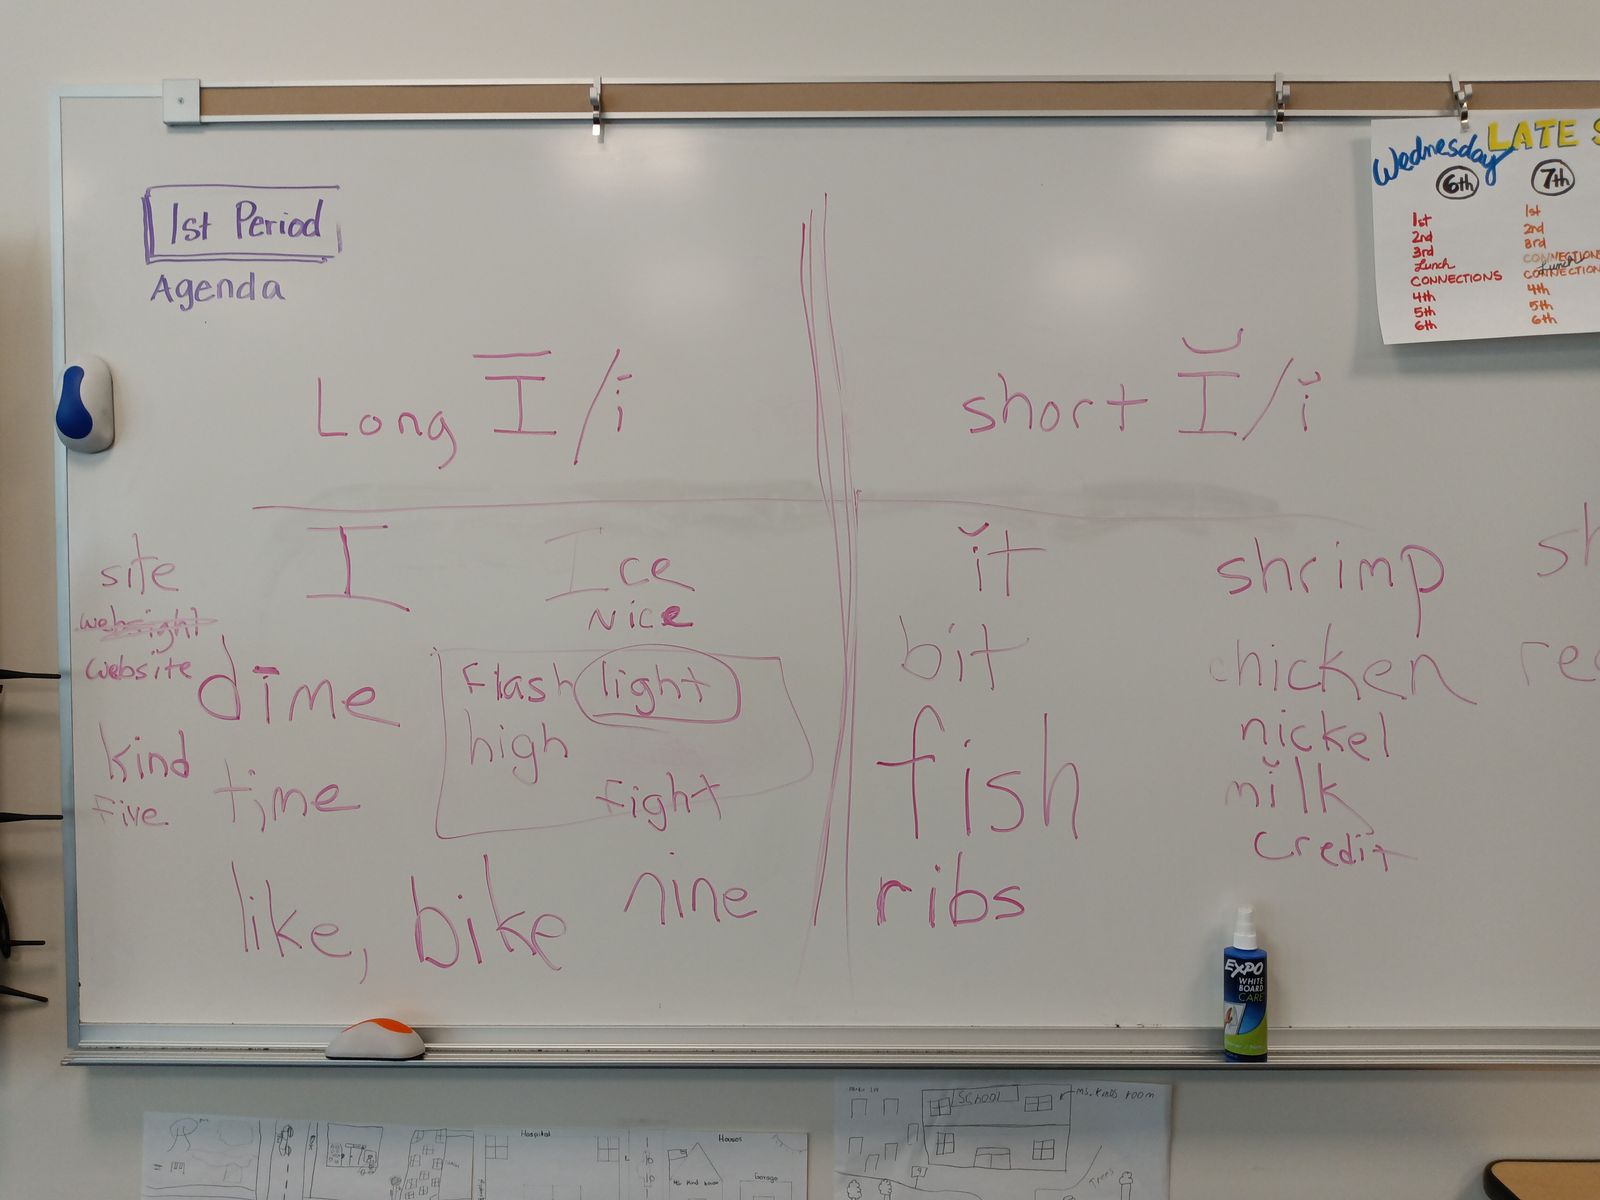 1st Period
Agenda
Long Ī/ī
short Ĭ/ĭ
site
website
kind
five
I
dīme
time
like, bike
Ice
Nice
flash light
high
fight
nine
ĭt
bit
fish
ribs
shrimp
chicken
nickel
mĭlk
credit
Wednesday
LATE
6th
1st
2nd
3rd
Lunch
CONNECTIONS
4th
5th
6th
7th
1st
2nd
3rd
CONNECTIONS
Lunch
4th
5th
6th
EXPO
WHITE
BOARD
CARE
Hospital
Houses
Garage
SCHOOL
Ms. Kinds room
Trees